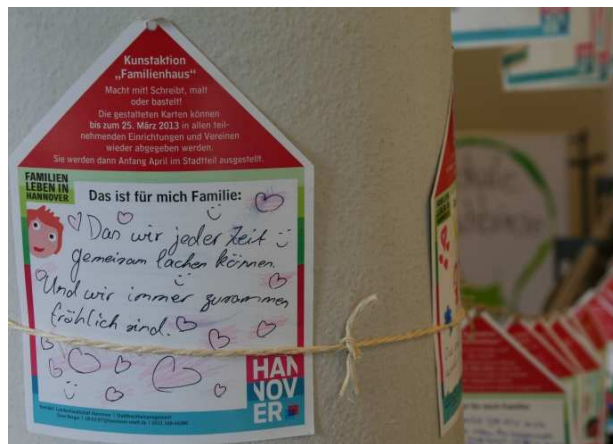 Kunstaktion
„Familienhaus"
Macht mit! Schreibt, malt
oder bastelt!
Die gestalteten Karten können
bis zum 25. März 2013 in allen teil-
nehmenden Einrichtungen und Vereinen
wieder abgegeben werden.
Sie werden dann Anfang April im Stadtteil ausgestellt.
FAMILIEN
LEBEN IN
HANNOVER
Das ist für mich Familie:
Das wir jeder Zeit
gemeinsam lachen können.
Und wir immer zusammen
fröhlich sind.
HAN
NOV
ER